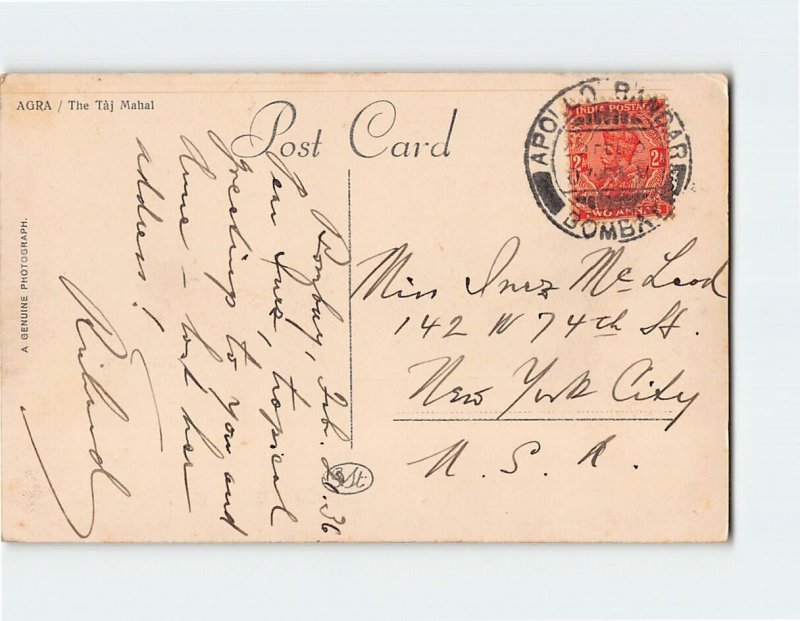 AGRA / The Tâj Mahal
Post Card
A GENUINE PHOTOGRAPH.
Bombay, Feb. 20. 36
Dear Inez, tropical
greetings to you and
Anne - lost her
address!
Richard
INDIA POSTAGE
2A 2A
TWO ANNAS
APOLLO BANDAR
BOMBAY
Miss Inez McLeod
142 W 74th St.
New York City
U. S. A.